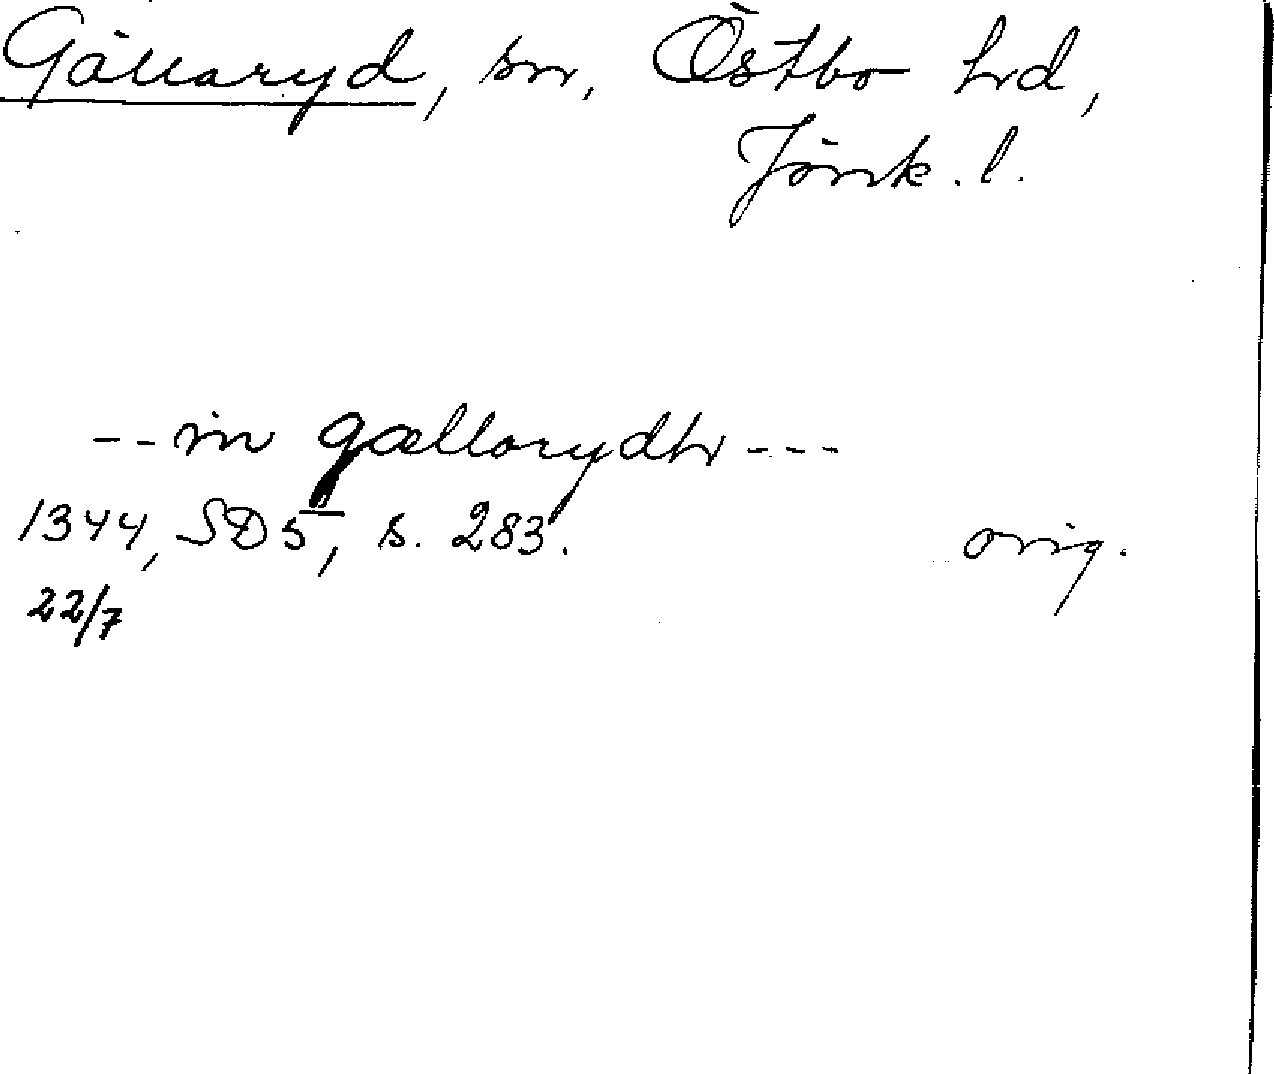 Gällaryd, sn, Östbo hd,
Jönk. l.
-- in gællorydh ---
1344, SD 5, s. 283. orig.
22/7